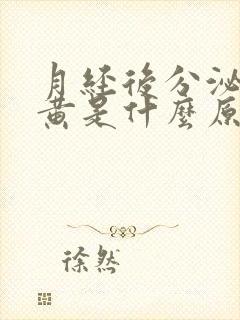 月經後分泌
黃是什麼原
徐然